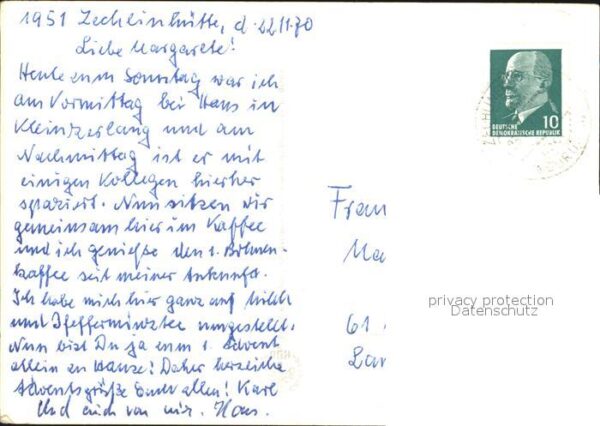 1951 Zechlinhütte, d. 22.11.70
Liebe Margarete!
Heute zum Sonntag war ich
am Vormittag bei Hans in
Kleinzerlang und am
Nachmittag ist er mit
einigen Kollegen hierher
spaziert. Nun sitzen wir
gemeinsam hier im Kaffee
und ich genieße den 1. Bohnen-
kaffee seit meiner Ankunft.
Ich habe mich hier ganz auf Milch
und Pfefferminztee umgestellt.
Nun bist Du ja zum 1. Advent
allein zu Hause! Daher herzliche
Adventsgrüße Euer allen! Karl
Und auch von mir. Hans.
10
DEUTSCHE
DEMOKRATISCHE REPUBLIK
Frau
Ma
61
privacy protection
Datenschutz